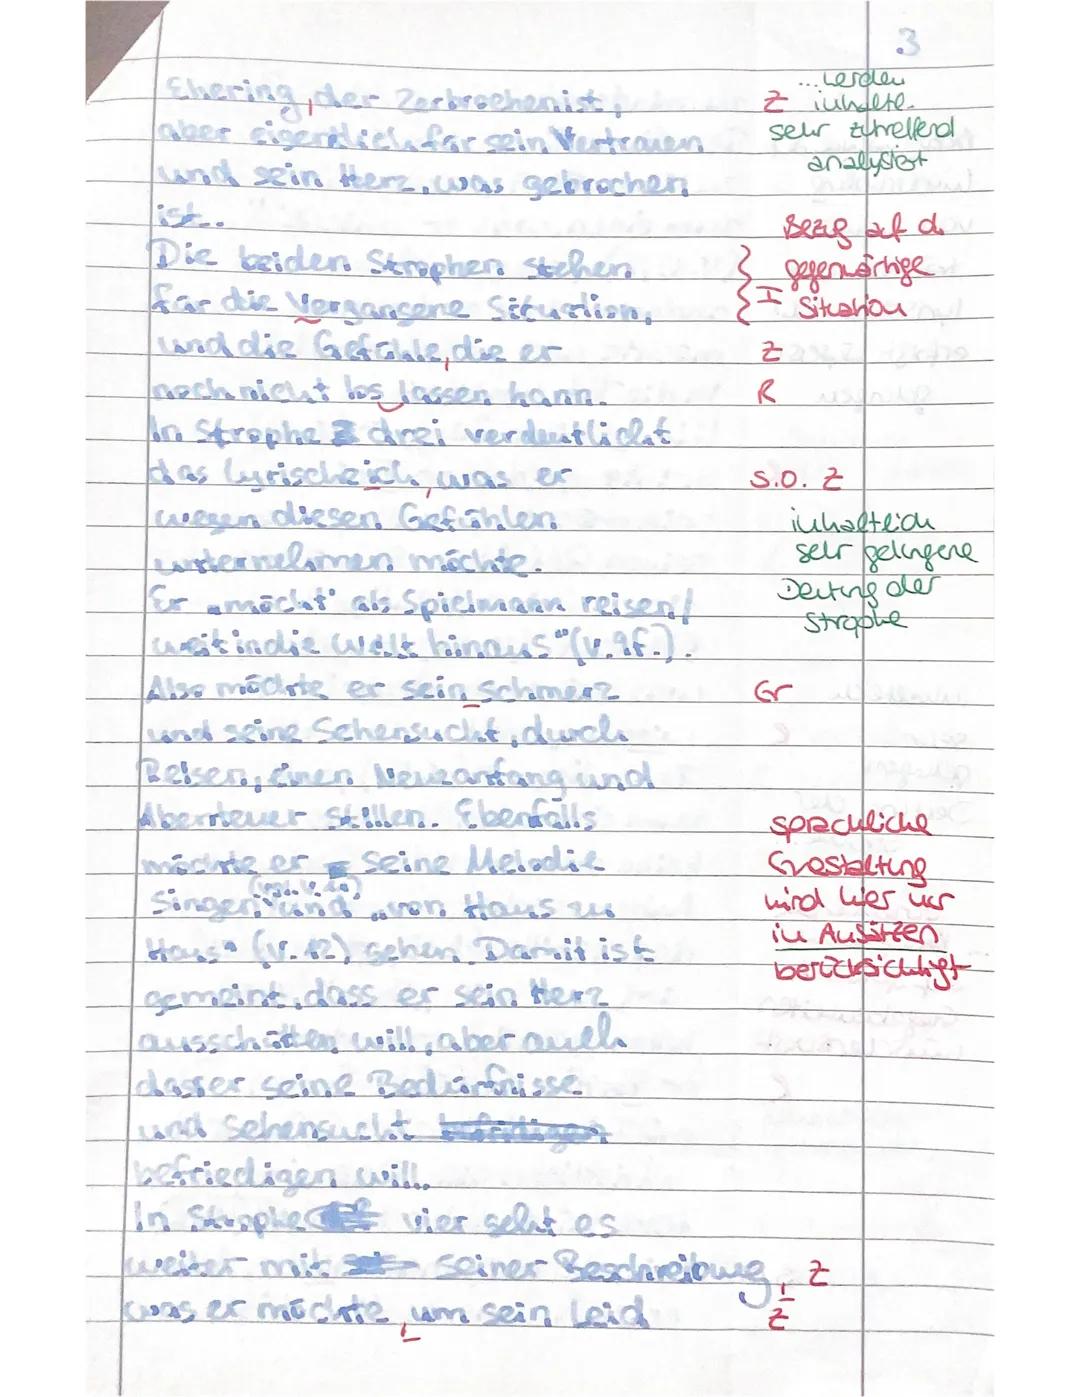 3
Ehering, der Zerbrochenist,
aber eigendlich für sein Vertrauen
und sein Herz, was gebrochen
ist.
Die beiden Strophen stehen
für die Vergangene Situation,
und die Gefühle, die er
noch nicht los lassen kann.
In Strophe drei verdeutlicht
das lyrische ich, was er
wegen diesen Gefühlen
unternehmen möchte.
Er „möcht' als Spielmann reisen/
weit in die Welt hinaus" (V. 9f.).
Also möchte er sein schmerz
und seine Sehensucht, durch
Reisen, einen Neuanfang und
Abenteuer stillen. Ebenfalls
möchte er seine Melodie
Singen (vgl. V. 10) und „von Haus zu
Haus" (V. 12) gehen. Damit ist
gemeint, dass er sein Herz
ausschütten will, aber auch
dass er seine Bedürfnisse
und Sehensucht
befriedigen will.
In Strophe vier geht es
weiter mit seiner Beschreibung,
was er möchte, um sein Leid
... werden
Z inhalte.
sehr zutreffend
analysiert
Bezug auf d.
gegenwärtige
I Situation
Z
R
s.o. Z
inhaltlich
sehr gelungene
Deutung der
Strophe
Gr
sprachliche
Gestaltung
wird hier nur
in Ansätzen
berücksichtigt
Z
Z